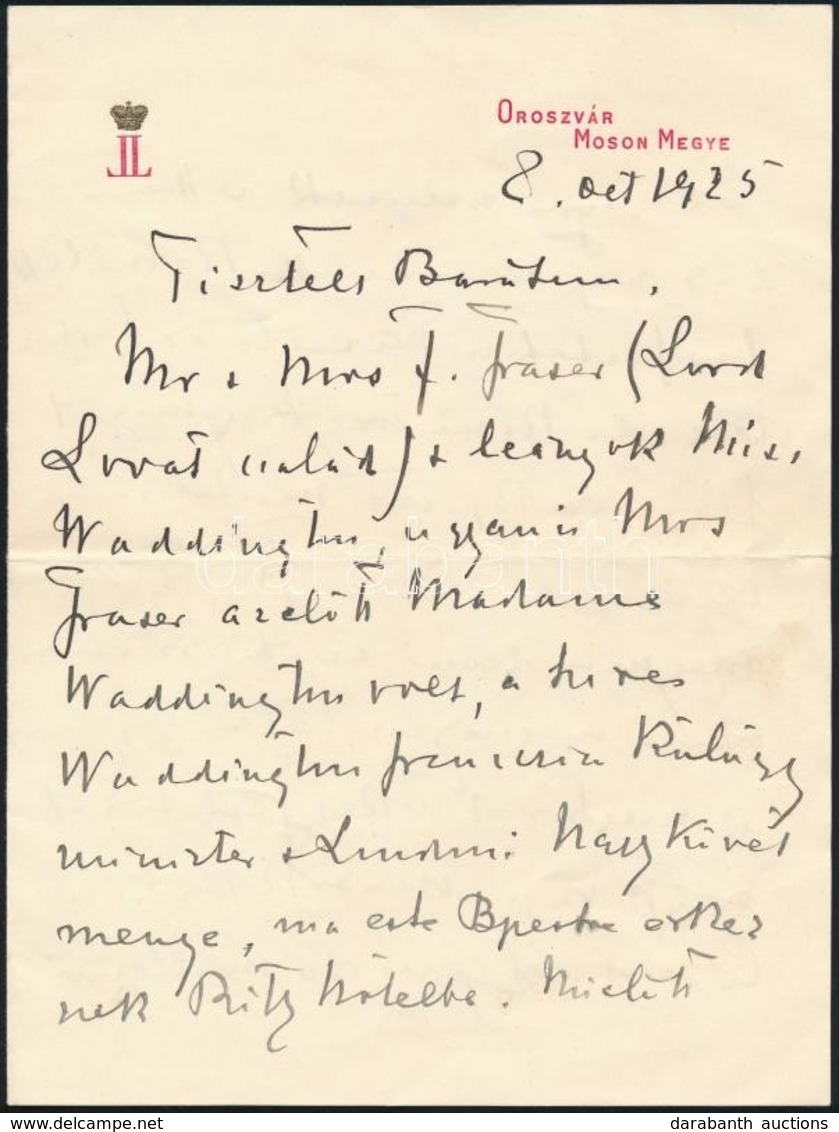 Oroszvár
Moson Megye
8. oct 1925
Tisztelt Barátom,
Mr & Mrs F. Fraser (Lord
Lovat család) & leányok Miss
Waddington, ugyanis Mrs
Fraser azelőtt Madame
Waddington volt, a híres
Waddington francia Külügy
minister & Londoni Nagykövet
menye, ma este Bpestre érkez
nek Ritz Hotelbe. Mielőtt
darabanth
delcampe.net
darabanth auctions